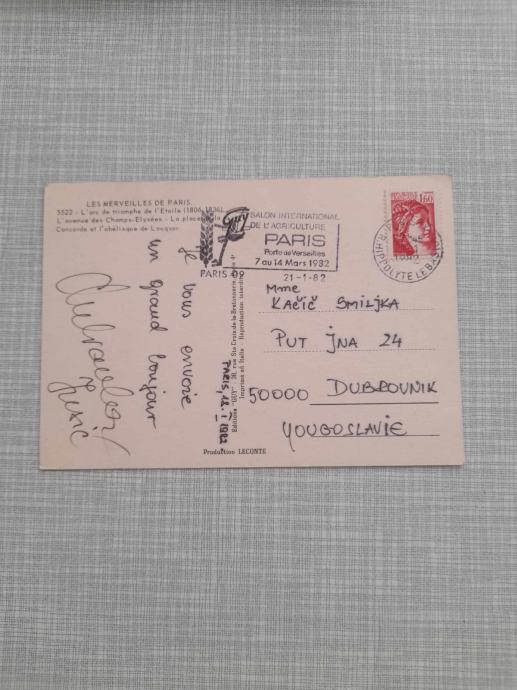 LES MERVEILLES DE PARIS
5522 - L'arc de triomphe de l'Etoile (1806-1836)
L'avenue des Champs-Elysées - La place de la
Concorde et l'obélisque de Louqsor
Guy
SALON INTERNATIONAL
DE L'AGRICULTURE
PARIS
Porte de Versailles
7 au 14 Mars 1982
PARIS 09
21-1-82
1,60
R. HIPPOLYTE LEBAS
je vous envoie
un grand bonjour
Jusić
PARIS, 12. I 1982
Editions "GUY" 38, rue Ste Croix-de-la-Bretonnerie, Paris 4e
Imprimé en Italie - Reproduction interdite
Production LECONTE
Mme
KAČIČ SMILJKA
PUT JNA 24
50000 DUBROVNIK
YOUGOSLAVIE